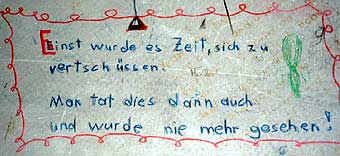 Einst wurde es Zeit, sich zu
vertschüssen.
Man tat dies dann auch
und wurde nie mehr gesehen!